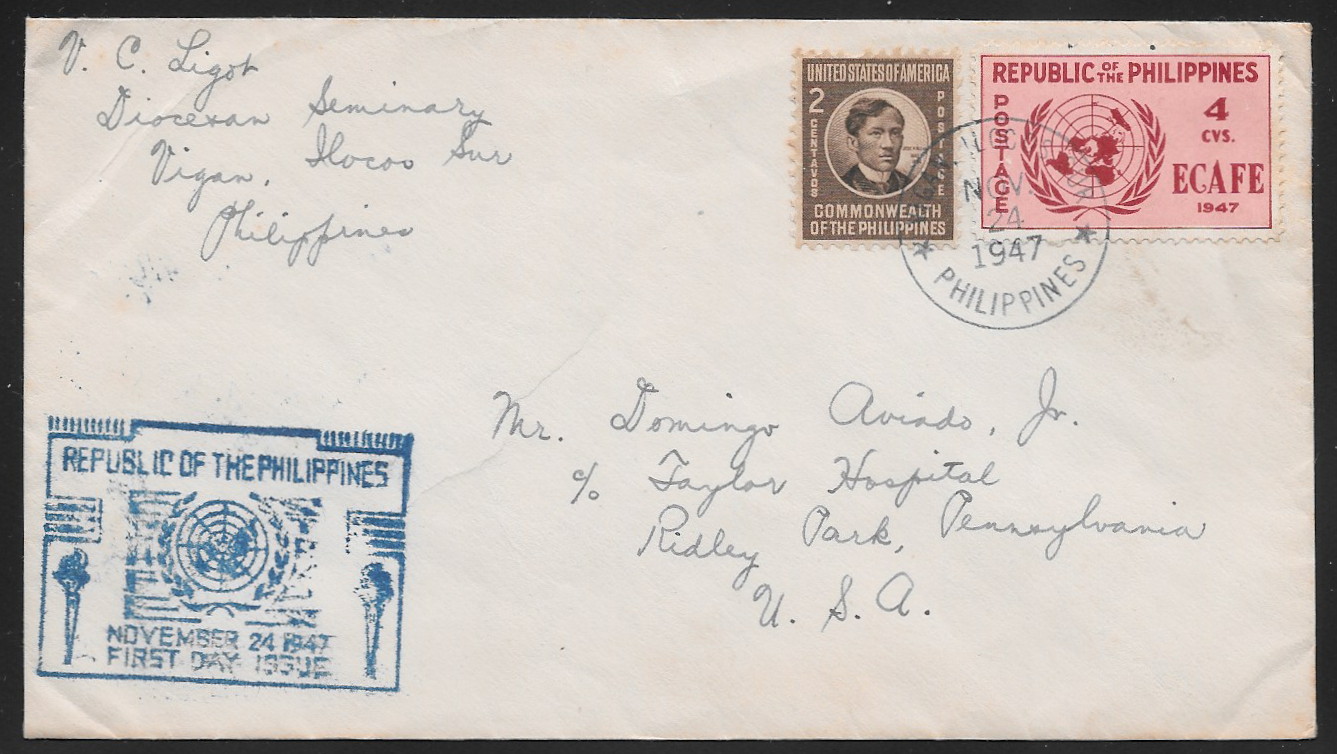 V. C. Ligot
Diocesan Seminary
Vigan, Ilocos Sur
Philippines
UNITED STATES OF AMERICA
2 CENTAVOS
POSTAGE
COMMONWEALTH
OF THE PHILIPPINES
REPUBLIC OF THE PHILIPPINES
POSTAGE
4
CVS.
ECAFE
1947
NOV
24
1947
PHILIPPINES
Mr. Domingo Aviado, Jr.
c/o Taylor Hospital
Ridley Park, Pennsylvania
U. S. A.
REPUBLIC OF THE PHILIPPINES
NOVEMBER 24 1947
FIRST DAY ISSUE